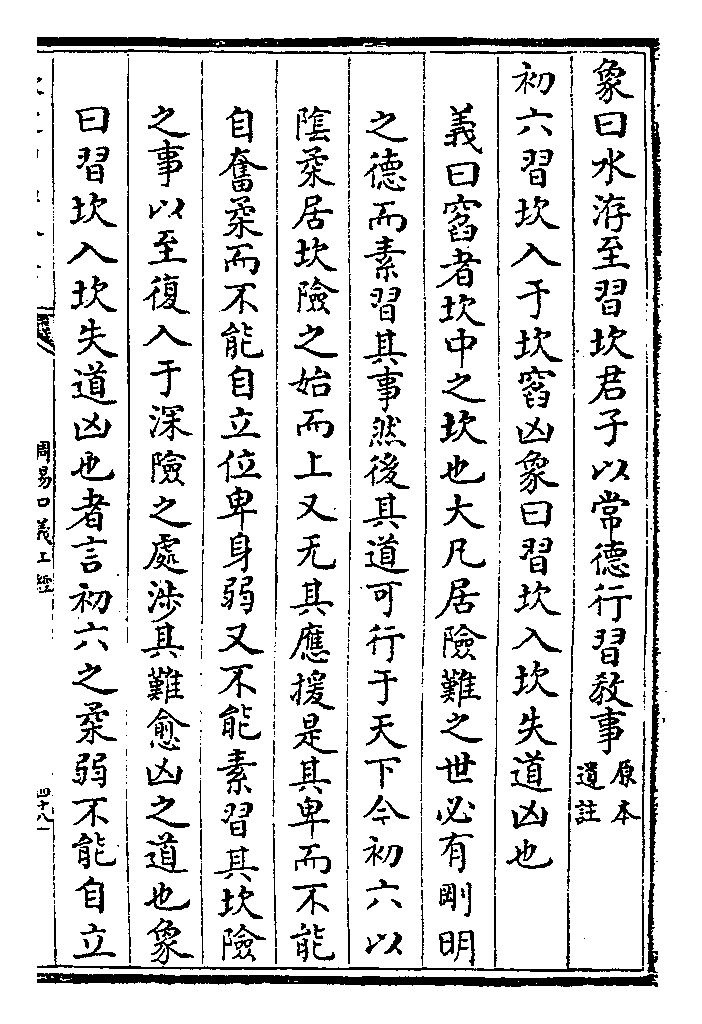 象曰水洊至習坎君子以常德行習敎事原本遺註
初六習坎入于坎窞凶象曰習坎入坎失道凶也
義曰窞者坎中之坎也大凡居險難之世必有剛明
之德而素習其事然後其道可行于天下今初六以
陰柔居坎險之始而上又无其應援是其卑而不能
自奮柔而不能自立位卑身弱又不能素習其坎險
之事以至復入于深險之處涉其難愈凶之道也象
曰習坎入坎失道凶也者言初六之柔弱不能自立
周易口義上經
四十八